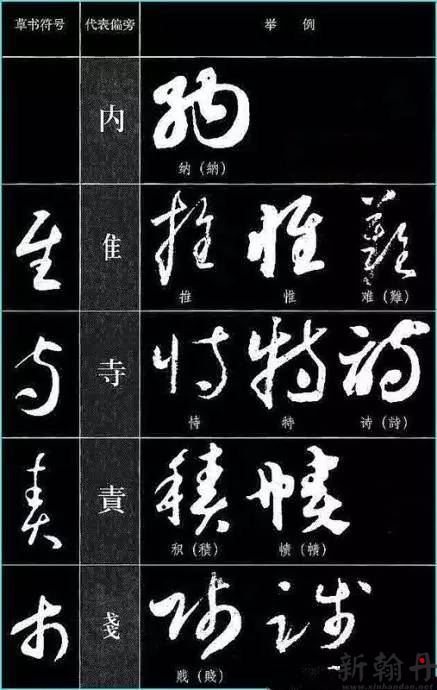 草书符号 代表偏旁 举 例
内
纳（納）
隹
推 惟 难（難）
寺
恃 特 诗（詩）
責
积（積） 帻（幘）
戔
贱（賤）
新翰丹